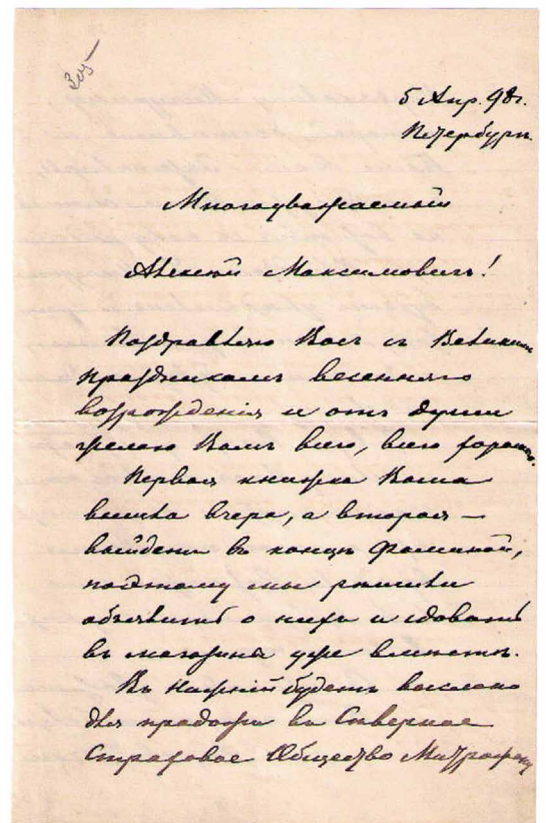 305
5 Апр. 98 г.
Петербургъ.
Многоуважаемый
Алексѣй Максимовичъ!
Поздравляю Васъ съ Великимъ
праздникомъ весенняго
возрожденія и отъ души
желаю Вамъ всего, всего хорошаго.
Первая книжка Ваша
вышла вчера, а вторая —
выйдетъ въ концѣ Фоминой,
поэтому мы рѣшили
объявить о нихъ и сдовать
въ магазины уже вмѣстѣ.
Въ Нижній будетъ выслано
для продажи въ Сѣверное
Страховое Общество Митрофану